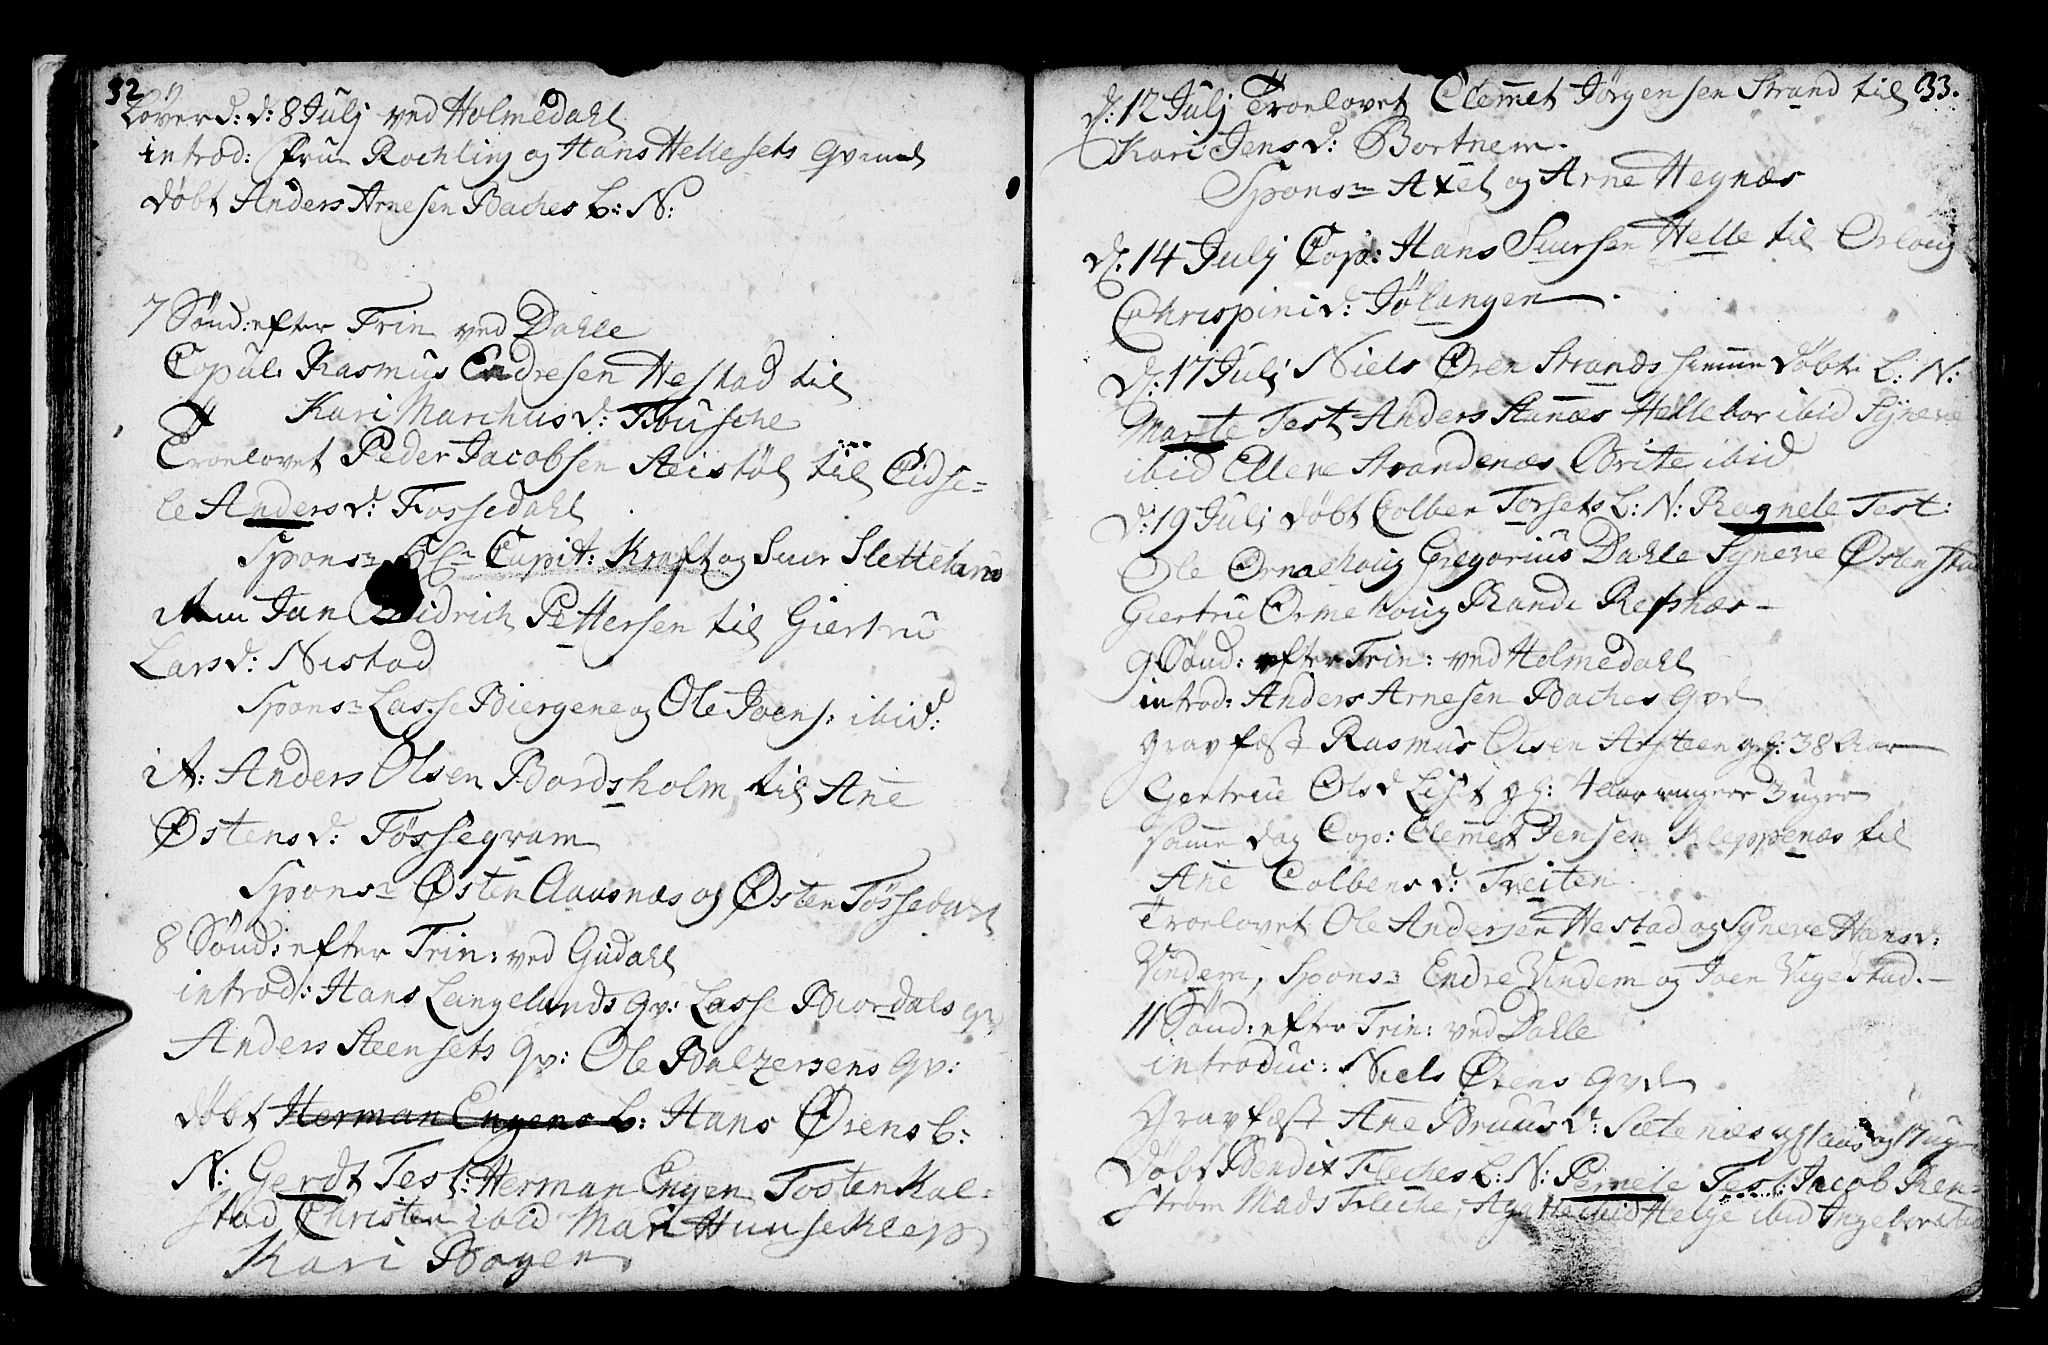 32
Løverd: d: 8 Julj ved Holmedahl
introd: fru Rochling og Hans Hellesets qvind
døbt Anders Arnesen Baches b: N:
7 Sønd: efter Trin ved Dahle
Copul: Rasmus Endresen Hestad til
Kari Marchusd: Tousche
Troelovet Peder Jacobsen Aeistøl til Eidse=
le Andersd: Fossedahl
Spons: Hr Capit: Kraft og Siur Sletteland
item Jan Didrich Pettersen til Giertru
Larsd: Nistad
Spons: Lasse Biergene og Ole Joens: ibid:
it: Anders Olsen Bordsholm til Ane
Østensd: Tøssegram
Spons: Østen Aausnæs og Østen Tøssedahl
8 Sønd: efter Trin: ved Gudahl
introd: Hans Langelands qv: Lasse Biordals qv
Anders Steensets qv: Ole Balzersens qv:
døbt Herman Engens b: Hans Ørens b:
N: Gerdt Test: Herman Engen Tosten Kal=
stad Christen ibid Mari Huuseklep
Kari Bøyen
33.
d: 12 Julj Troelovet Clemmet Jørgensen Strand til
Kari Jensd: Bortnem.
Spons: Axel og Arne Hegnæs
d: 14 Julj Cop: Hans Siursen Helle til Orloug
Chrispinid: Jølangen
d: 17 Julj Niels Ören Strands hiemme døbt b: N:
Marte Test Anders Stanæs Hellebor ibid Synneve
ibid Elleve Strandenæs Brite ibid
d: 19 Julj døbt Colben Torsets b: N: Ragnele Test:
Ole Ormehoug Gregorius Dahle Synneve Østenstad
Giertru Ormehoug Rande Refsnæs
9 Sønd: efter Trin: ved Holmedahl
introd: Anders Arnesen Baches qvd
gravfæst Rasmus Olsen Arsteen gl: 38 Aar
Gertrue Olsd List gl: 4 aar ringere 3 uger
samme dag Cop: Clemmet Jensen Kleppenæs til
Ane Colbensd: Treiten
Troelovet Ole Andersen Hestad og Syneve Hansd:
Vindem, Spons: Endre Vindem og Joen Vagestad.
11 Sønd: efter Trin: ved Dahle
introduc: Niels Ørens qvd
gravfæst Ane Bruusd: Sætenæs gl 1 aar og 17 ug
døbt Bendix Fleches b: N: Pernele Test: Jacob Ren=
strøm Mads Fleche, Agatte ibid Helge ibid Ingebor ibid